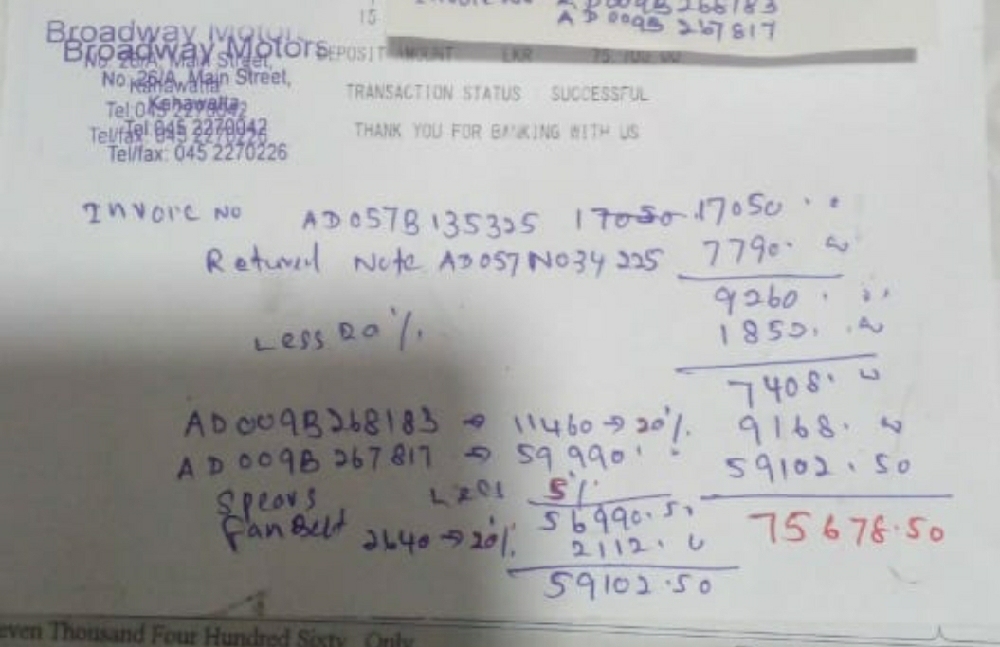 AD009B 268183
AD009B 267817
15
Broadway Motors
Broadway Motors
DEPOSIT AMOUNT LKR
No. 26/A, Main Street,
No. 26/A, Main Street,
Kahawatta
Kahawatta
TRANSACTION STATUS SUCCESSFUL
Tel:045 2270042
Tel:045 2270042
THANK YOU FOR BANKING WITH US
Tel/fax: 045 2270226
Tel/fax: 045 2270226
Invoic No AD057B135325 17050 17050
Returned Note AD057N034225 7790.
9260.
Less 20%. 1850.
7408.
AD009B268183 → 11460 → 20%. 9168.
AD009B 267817 → 59990. 59102.50
Spears Less 5%
56990.50 75678.50
Fan Belt 2640 → 20%. 2112.
59102.50
even Thousand Four Hundred Sixty Only